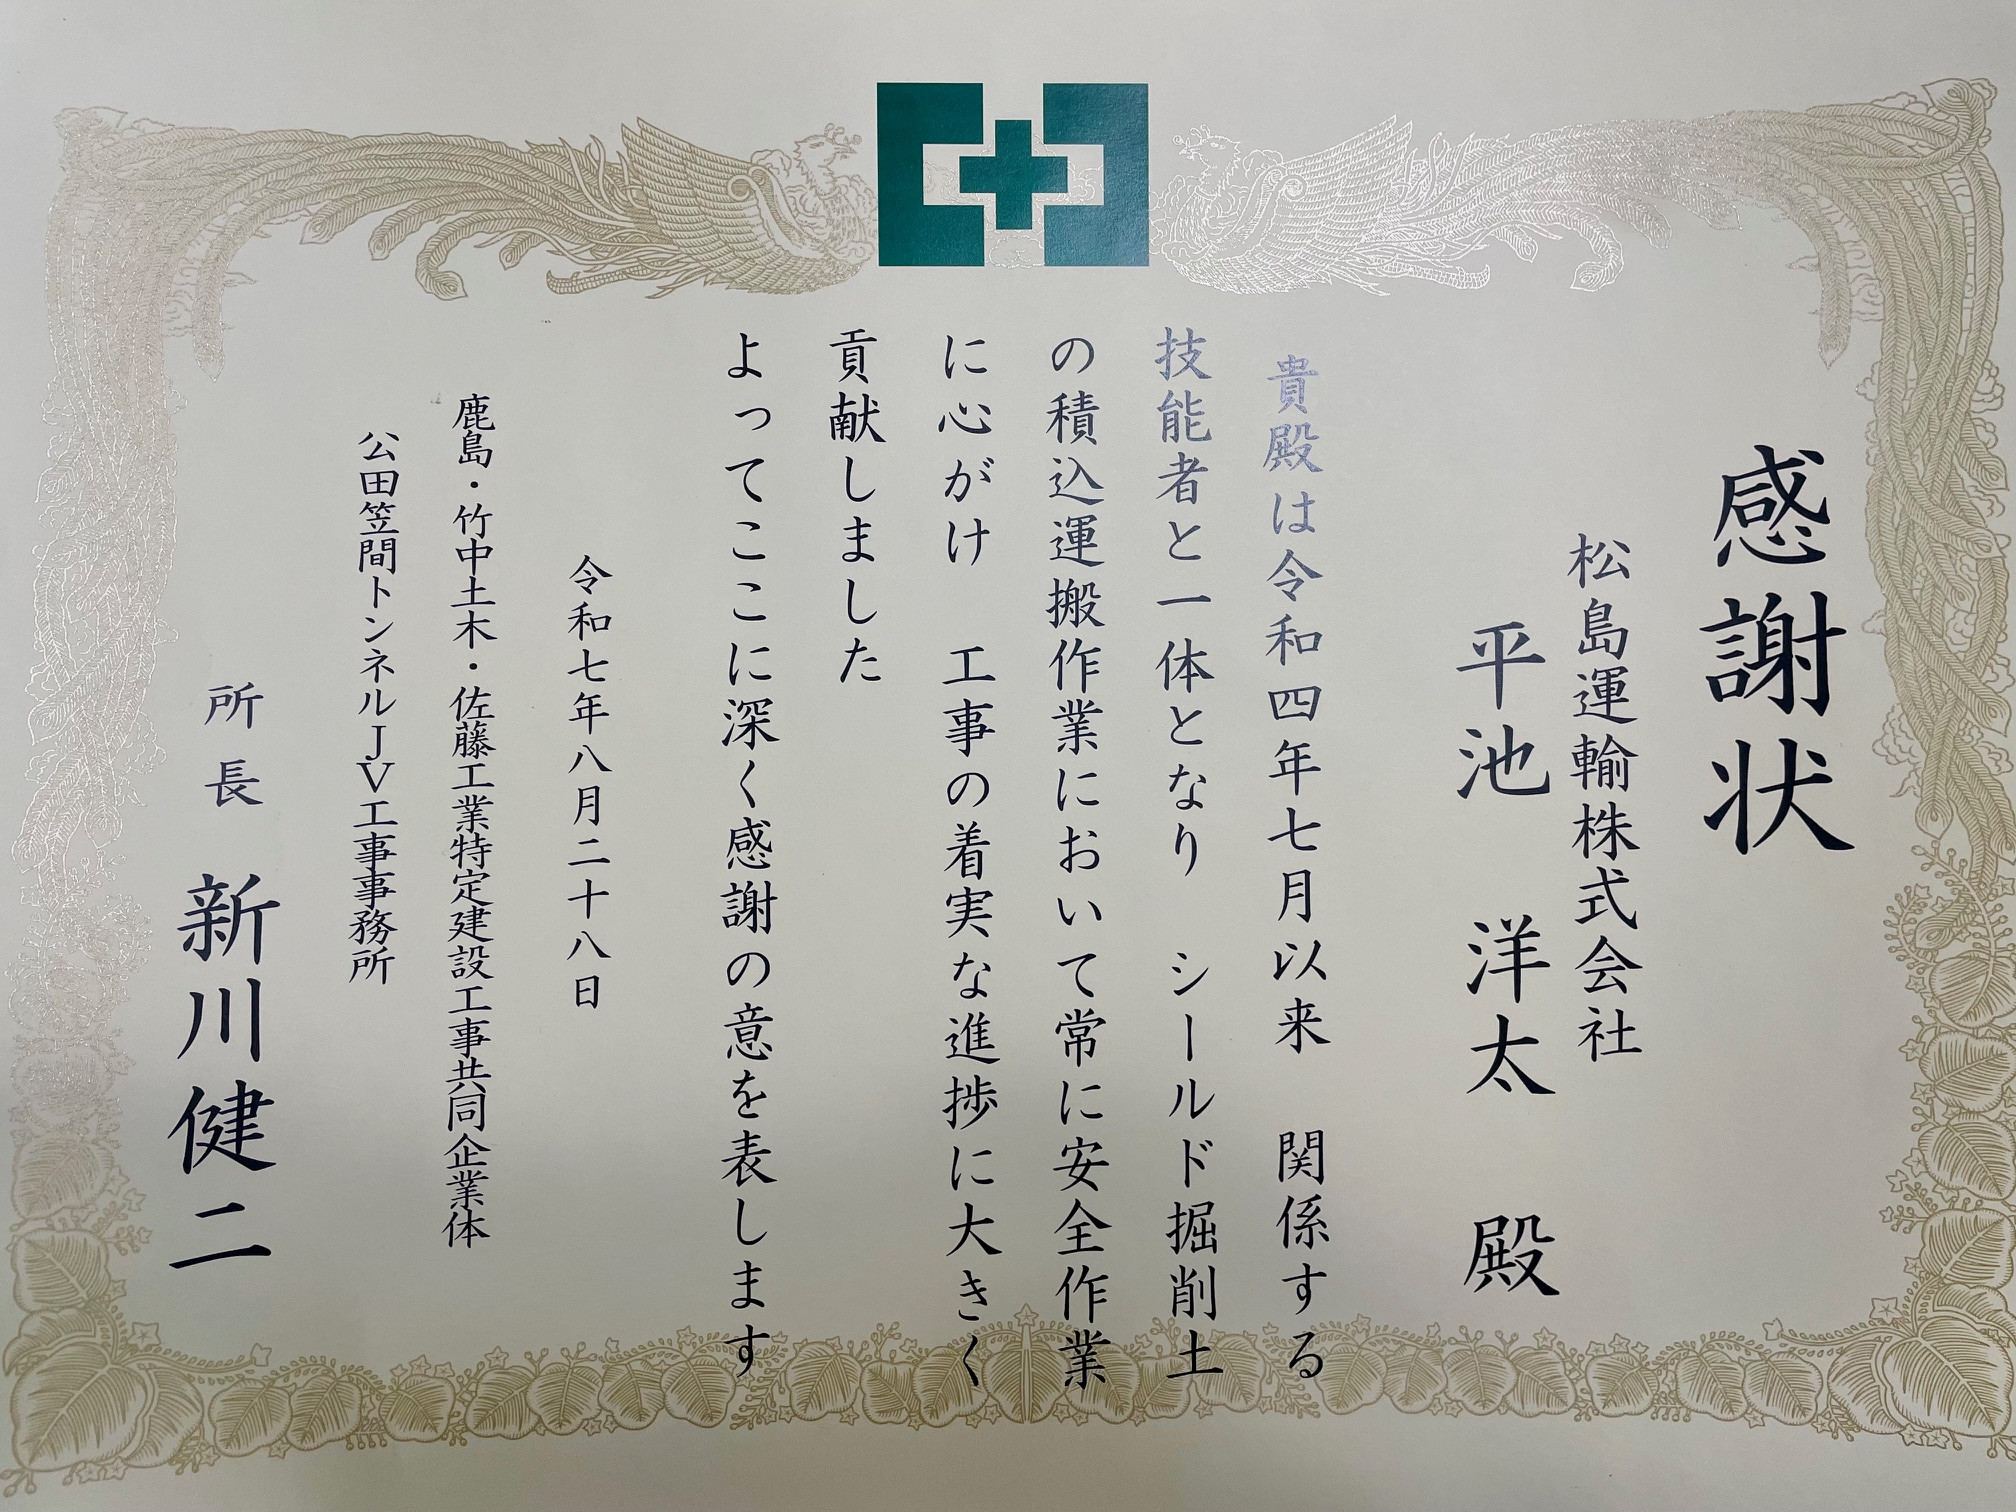 感謝状
松島運輸株式会社
平池 洋太 殿
貴殿は令和四年七月以来 関係する
技能者と一体となり シールド掘削土
の積込運搬作業において常に安全作業
に心がけ 工事の着実な進捗に大きく
貢献しました
よってここに深く感謝の意を表します
令和七年八月二十八日
鹿島・竹中土木・佐藤工業特定建設工事共同企業体
公田笠間トンネルJV工事事務所
所長 新川健二